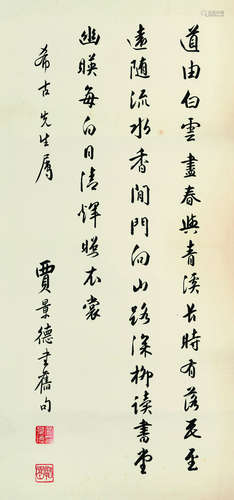 道由白雲盡春與青溪長時有落花至
遠隨流水香閒門向山路深柳讀書堂
幽暎每白日清煇照衣裳
希古先生屬
賈景德書舊句